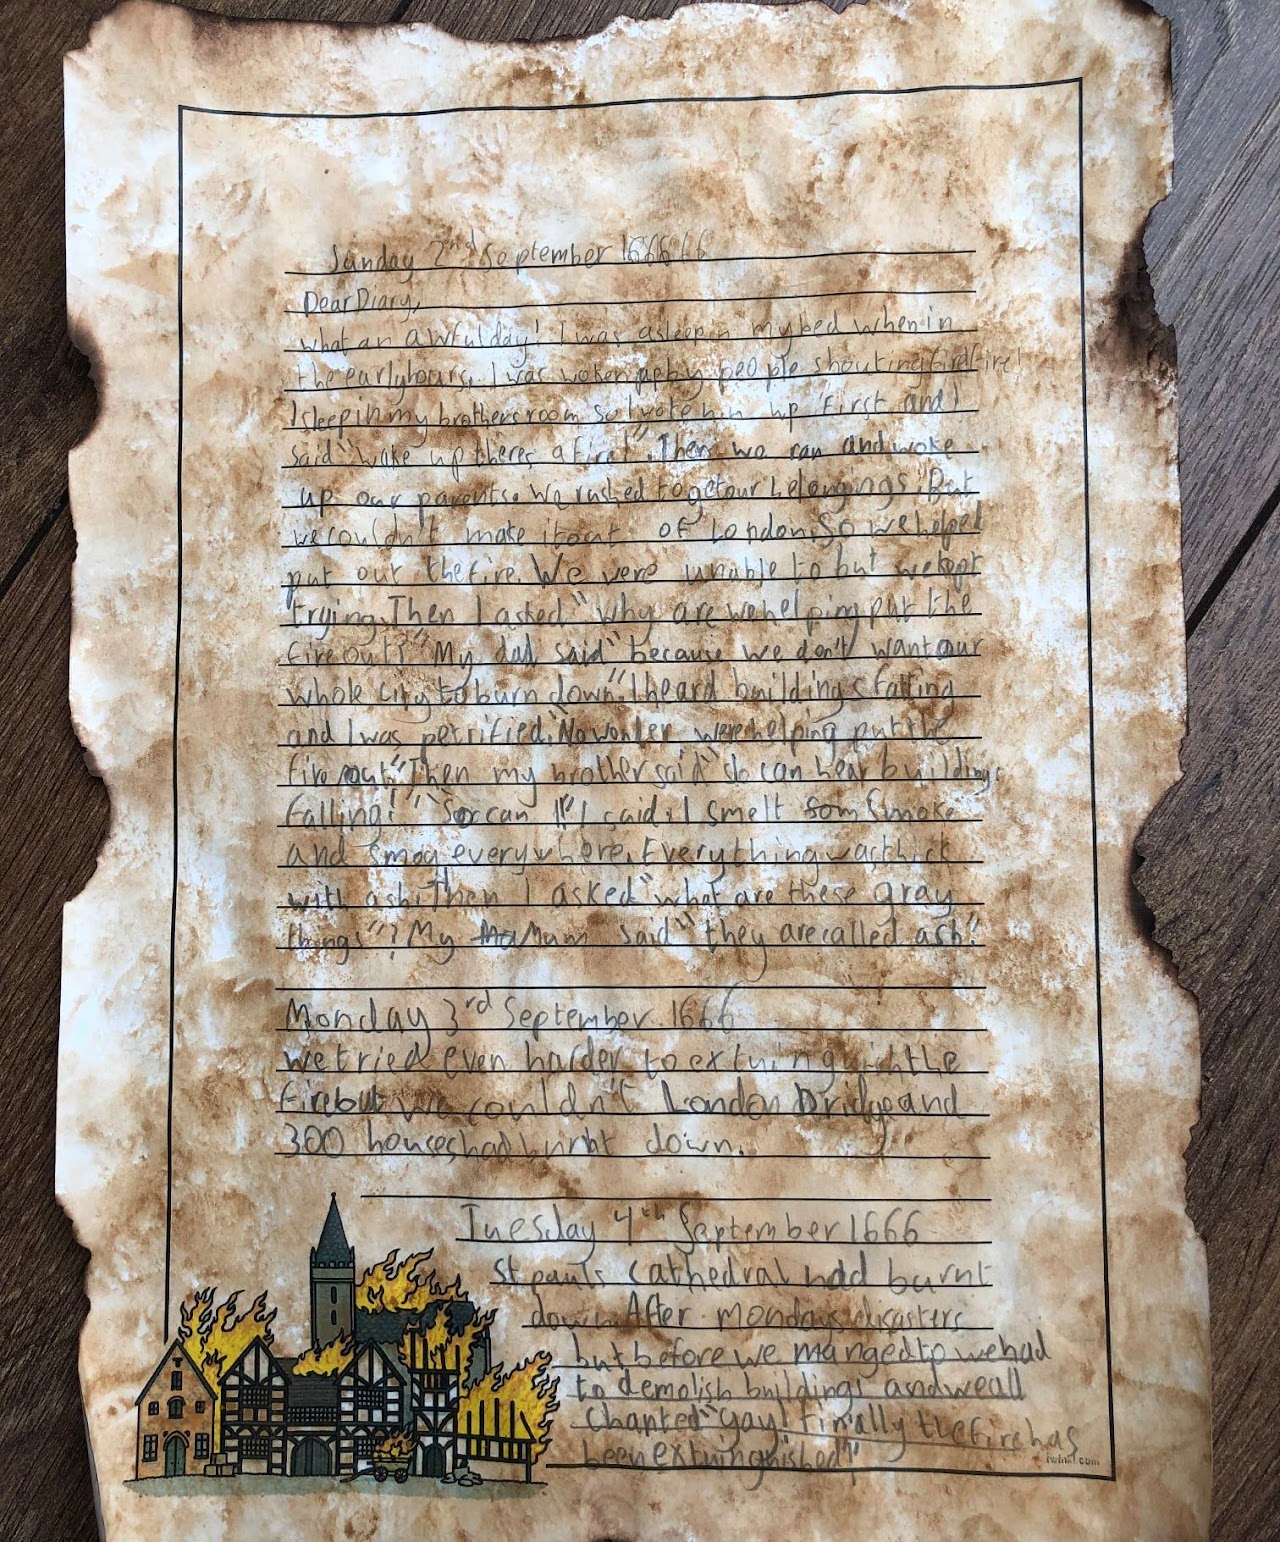 Sunday 2nd September 1666 66
Dear Diary,
what an awful day! I was asleep in my bed when in
the early hours, I was woken up by people shouting fire fire!
I sleep in my brothers room so I woke him up first and I
said "wake up theres a fire!" Then we ran and woke
up our parents. We rushed to get our belongings. But
we couldn't make it out of London. So we helped
put out the fire. We were unable to but we kept
trying. Then I asked "why are we helping put the
fire out?" My dad said "because we don't want our
whole city to burn down". I heard buildings falling
and I was petrified. "No wonder were helping put the
fire out." Then my brother said "I can hear buildings
falling!" "So can I" I said. I smelt som Smoke
and smog everywhere. Everything was thick
with ash. Then I asked "what are these gray
things"? My Mum said "they are called ash".
Monday 3rd September 1666
we tried even harder to extuinguish the
fire but we couldn't London Bridge and
300 houses had burnt down.
Tuesday 4th September 1666
St pauls Cathedral had burnt
down After mondays disasters
but before we manged to we had
to demolish buildings and we all
Chanted "yay! finally the fire has
been extuinguished!"
twinkl.com